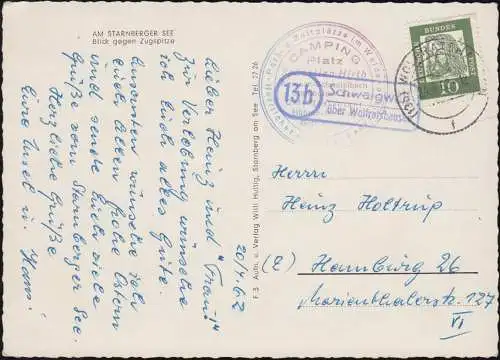 AM STARNBERGER SEE
Blick gegen Zugspitze
20/4.62
Lieber Heinz und "Frau"!
Zur Verlobung wünsche
ich Euch alles Gute.
Ansonsten wünsche ich
Euch Allen frohe Ostern
und sende Euch viele
Grüße vom Starnberger See.
Herzliche Grüße
Eure Insel u. Hans!
F 3 Aufn. u. Verlag Willi Huttig, Starnberg am See Tel. 27 26
CAMPING
Platz
Hirth
13b
Schwaigw
über Wolfratshause
(13b) WOL
DEUTSCHE BUNDESPOST
10
Herrn
Heinz Holtrup
(2) Hamburg 26
Marienthalerstr. 127
VI